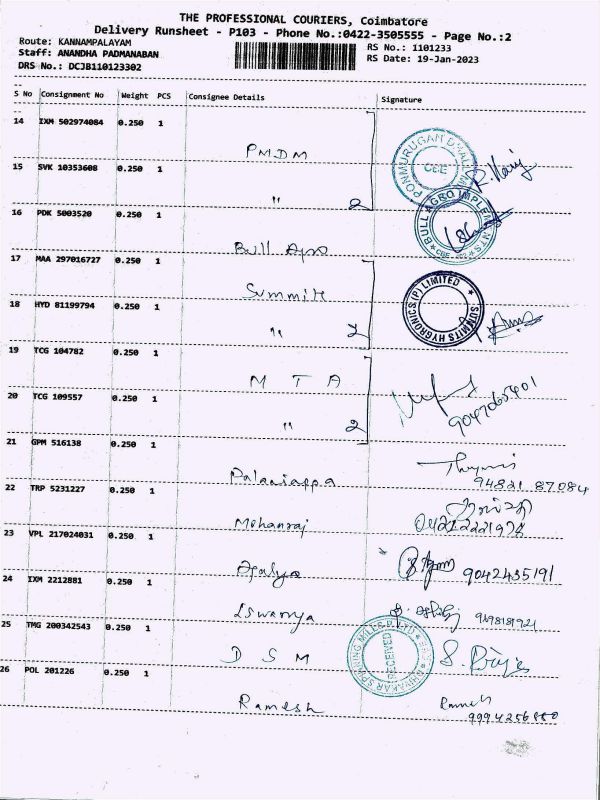 THE PROFESSIONAL COURIERS, Coimbatore
Delivery Runsheet - P103 - Phone No.:0422-3505555 - Page No.:2
Route: KANNAMPALAYAM
Staff: ANANDHA PADMANABAN
DRS No.: DCJB110123302
RS No.: 1101233
RS Date: 19-Jan-2023
S No Consignment No Weight PCS Consignee Details Signature
14 IXM 502974084 0.250 1 PMDM
15 SVK 10353608 0.250 1 " 2
PONMURUGAN CBE R. Kanij
16 PDK 5003520 0.250 1 Bull Agro
BULL AGRO IMPLEMENTS CBE
17 MAA 297016727 0.250 1 Summit
18 HYD 81199794 0.250 1 " 2
SUMMITS HYGRONICS (P) LIMITED
19 TCG 104782 0.250 1 M T A
20 TCG 109557 0.250 1 " 2
9047065401
21 GPM 516138 0.250 1 Palaniappa
94821 87084
22 TRP 5231227 0.250 1 Mohanraj
23 VPL 217024031 0.250 1 Agalya 9042435191
24 IXM 2212881 0.250 1 Iswarya
25 TMG 200342543 0.250 1 D S M
RECEIVED
26 POL 201226 0.250 1 Ramesh Ramesh
9994256880